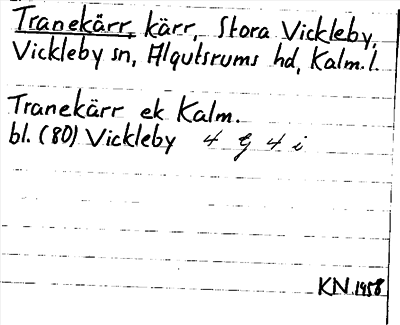 Tranekärr, kärr, Stora Vickleby,
Vickleby sn, Algutsrums hd, Kalm. l.
Tranekärr ek Kalm.
bl. (80) Vickleby 4 G 4 i
KN 1958